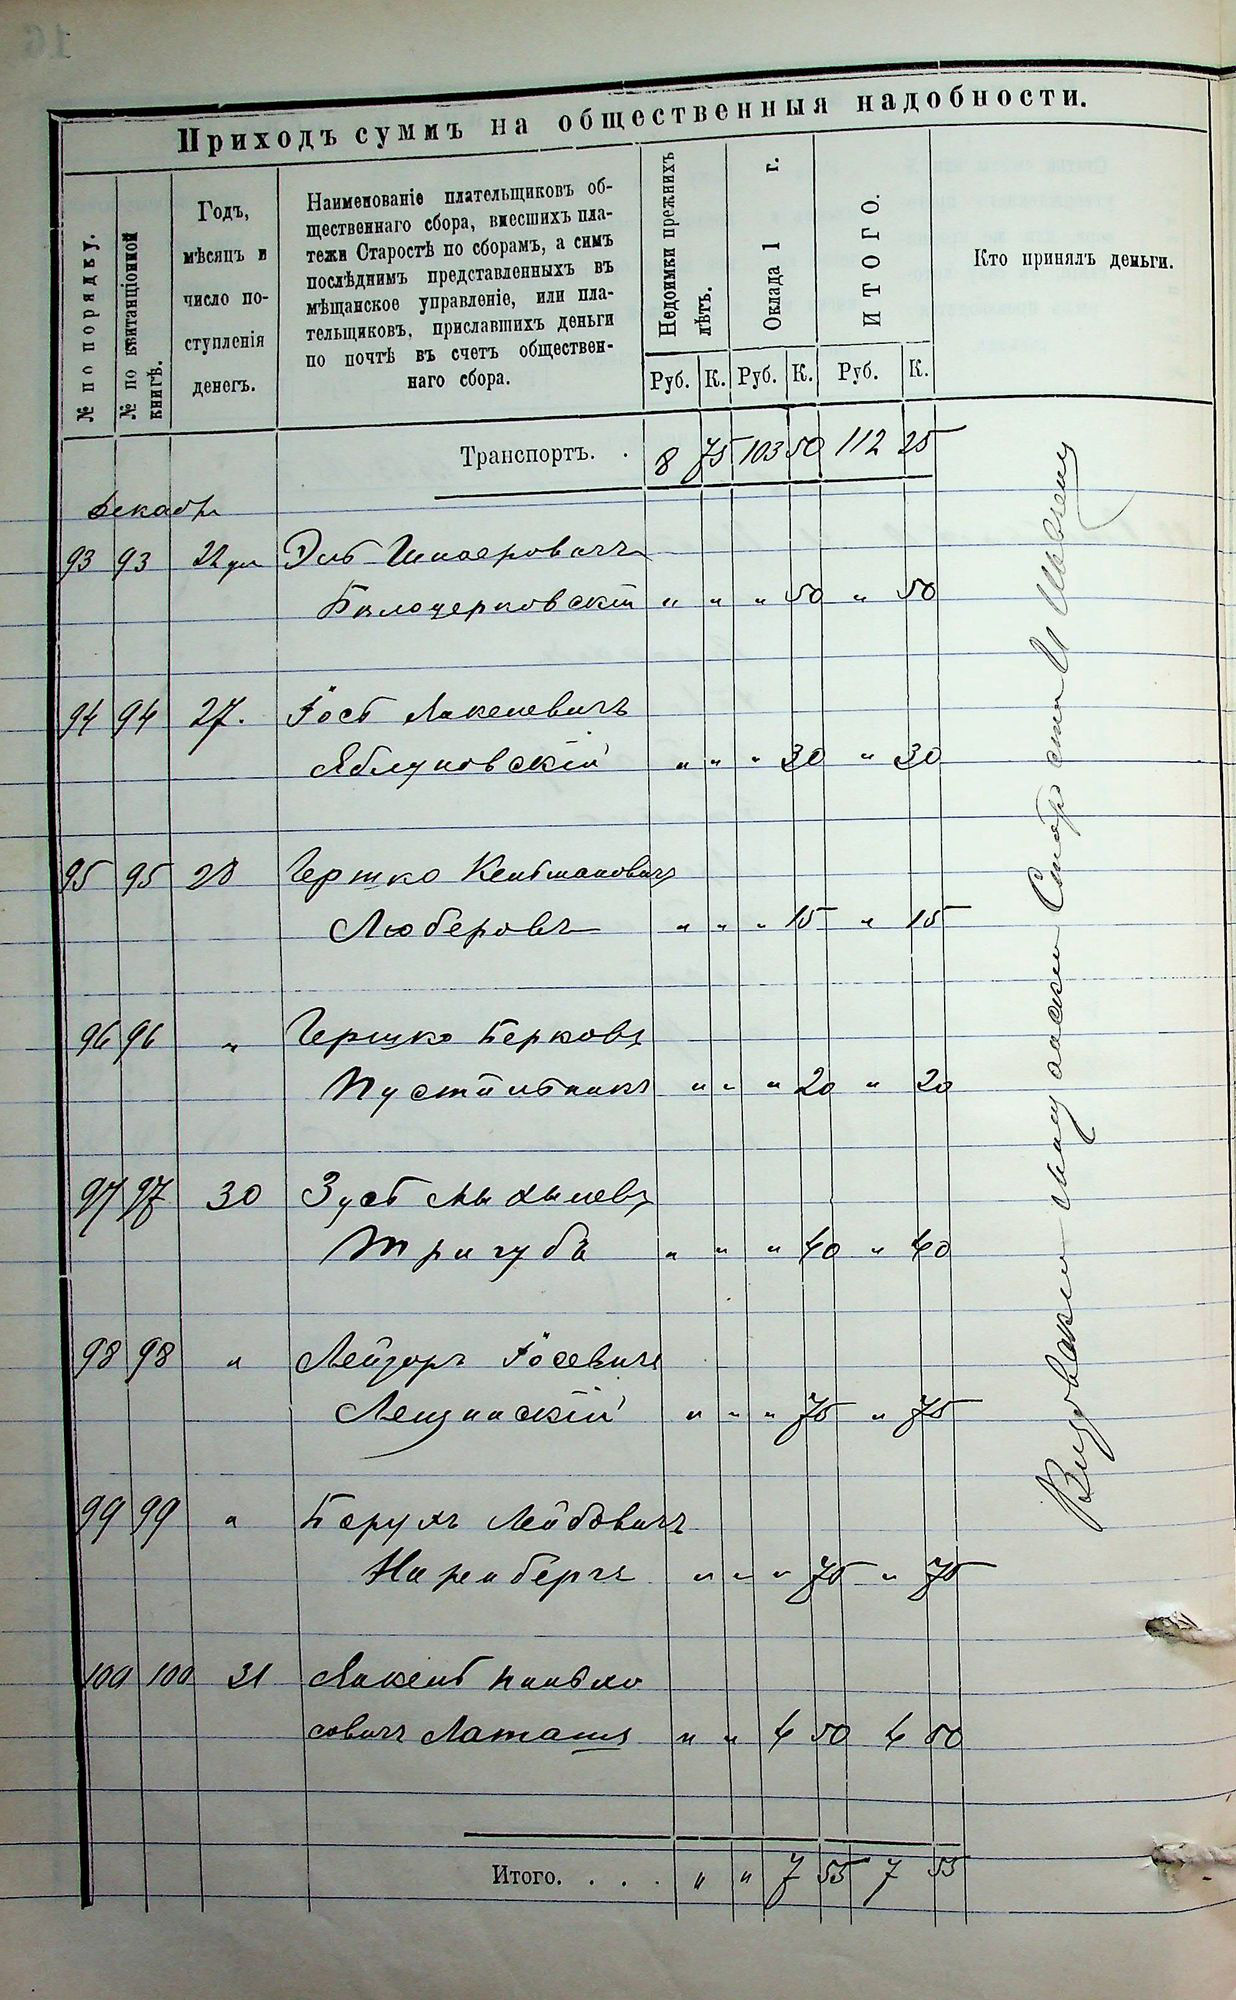 Приходъ суммъ на общественныя надобности.
№ по порядку.
№ по квитанціонной книгѣ.
Годъ,
мѣсяцъ и
число по-
ступленія
денегъ.
Наименованіе плательщиковъ об-
щественнаго сбора, внесшихъ пла-
тежи Старостѣ по сборамъ, а симъ
послѣднимъ представленныхъ въ
мѣщанское управленіе, или пла-
тельщиковъ, приславшихъ деньги
по почтѣ въ счетъ обществен-
наго сбора.
Недоимки прежнихъ
лѣтъ.
Оклада 1 г.
ИТОГО.
Кто принялъ деньги.
Руб. К. Руб. К. Руб. К.
Транспортъ. . 8 75 103 50 112 25
Декабр
93 93 22 Эль
Бѣлоцерковскій " " " 50 " 50
94 94 27. Іось
Яблуновскій " " " 30 " 30
95 95 28 Гершко Кельмановичъ
Люберовъ " " " 15 " 15
96 96 " Гершко Берковъ
Пустильникъ " " " 20 " 20
97 97 30 Зусь
Тригубъ " " " 40 " 40
98 98 " Лейзоръ Іосевичъ
Лещинскій " " " 75 " 75
99 99 " Борухъ Лейбовичъ
Ниренбергъ " " " 75 " 75
100 100 31 Янкель
совичъ " " 4 50 4 50
Итого. . . . " " 7 55 7 55